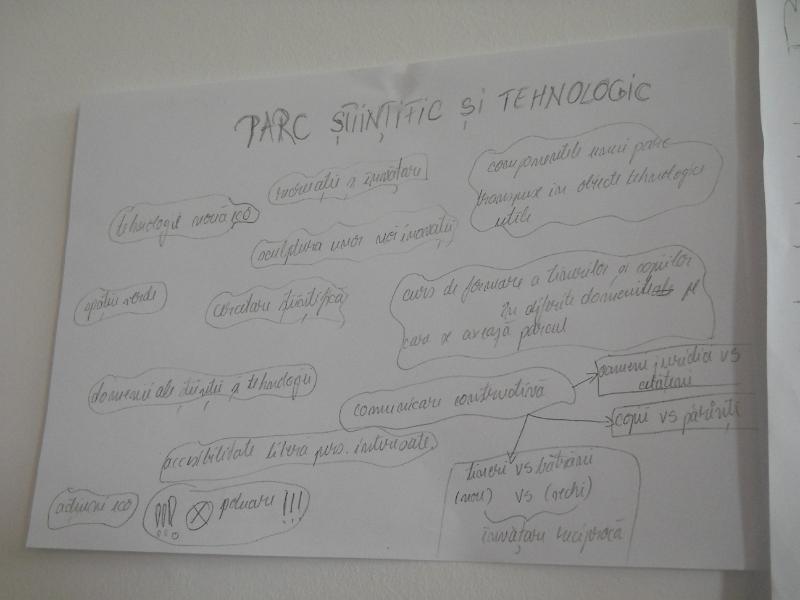 PARC ȘTIINȚIFIC ȘI TEHNOLOGIC
recreații și învățare
componentele unui parc
transpuse în obiecte tehnologice
utile
tehnologie nouă eco
sculptura unor noi inovații
spațiu verde
cercetare științifică
curs de formare a tinerilor și copiilor
în diferite domenii pe
care se axează parcul
domenii ale științei și tehnologiei
comunicare constructivă
oameni juridici vs
cetățeni
copii vs părinți
accesibilitate libera pers. interesate
tineri vs bătrâni
(nou) vs (vechi)
învățare reciprocă
acțiuni eco
!!! poluare !!!